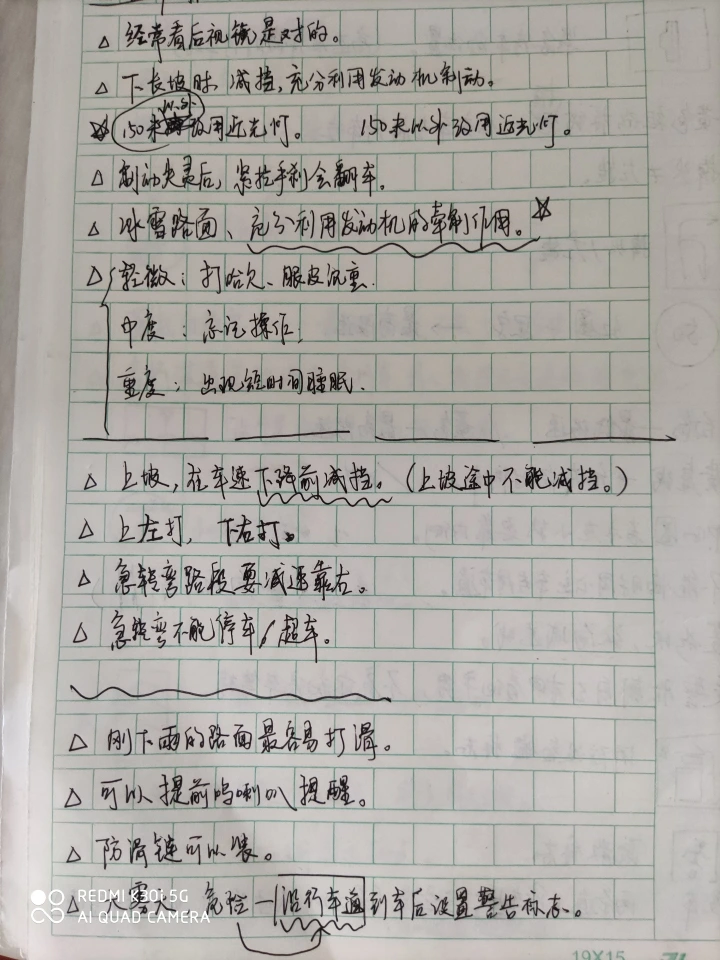 △ 经常看后视镜是对的。
△ 下长坡时、减挡,充分利用发动机制动。
☆ 150米以外改用近光灯。 150米以外改用近光灯。
△ 制动失灵后,紧拉手刹会翻车。
△ 冰雪路面、充分利用发动机的牵制作用。☆
△ 轻微:打哈欠、眼皮沉重.
中度:忘记操作;
重度:出现短时间睡眠.
△ 上坡,在车速下降前减挡。(上坡途中不能减挡。)
△ 上左打,下右打。
△ 急转弯路段要减速靠右。
△ 急转弯不能停车/超车。
△ 刚下雨的路面最容易打滑。
△ 可以提前鸣喇叭提醒。
△ 防滑链可以装。
△ 大雾天 危险一沿行车道到车后设置警告标志。
REDMI K30i 5G
AI QUAD CAMERA
19X15